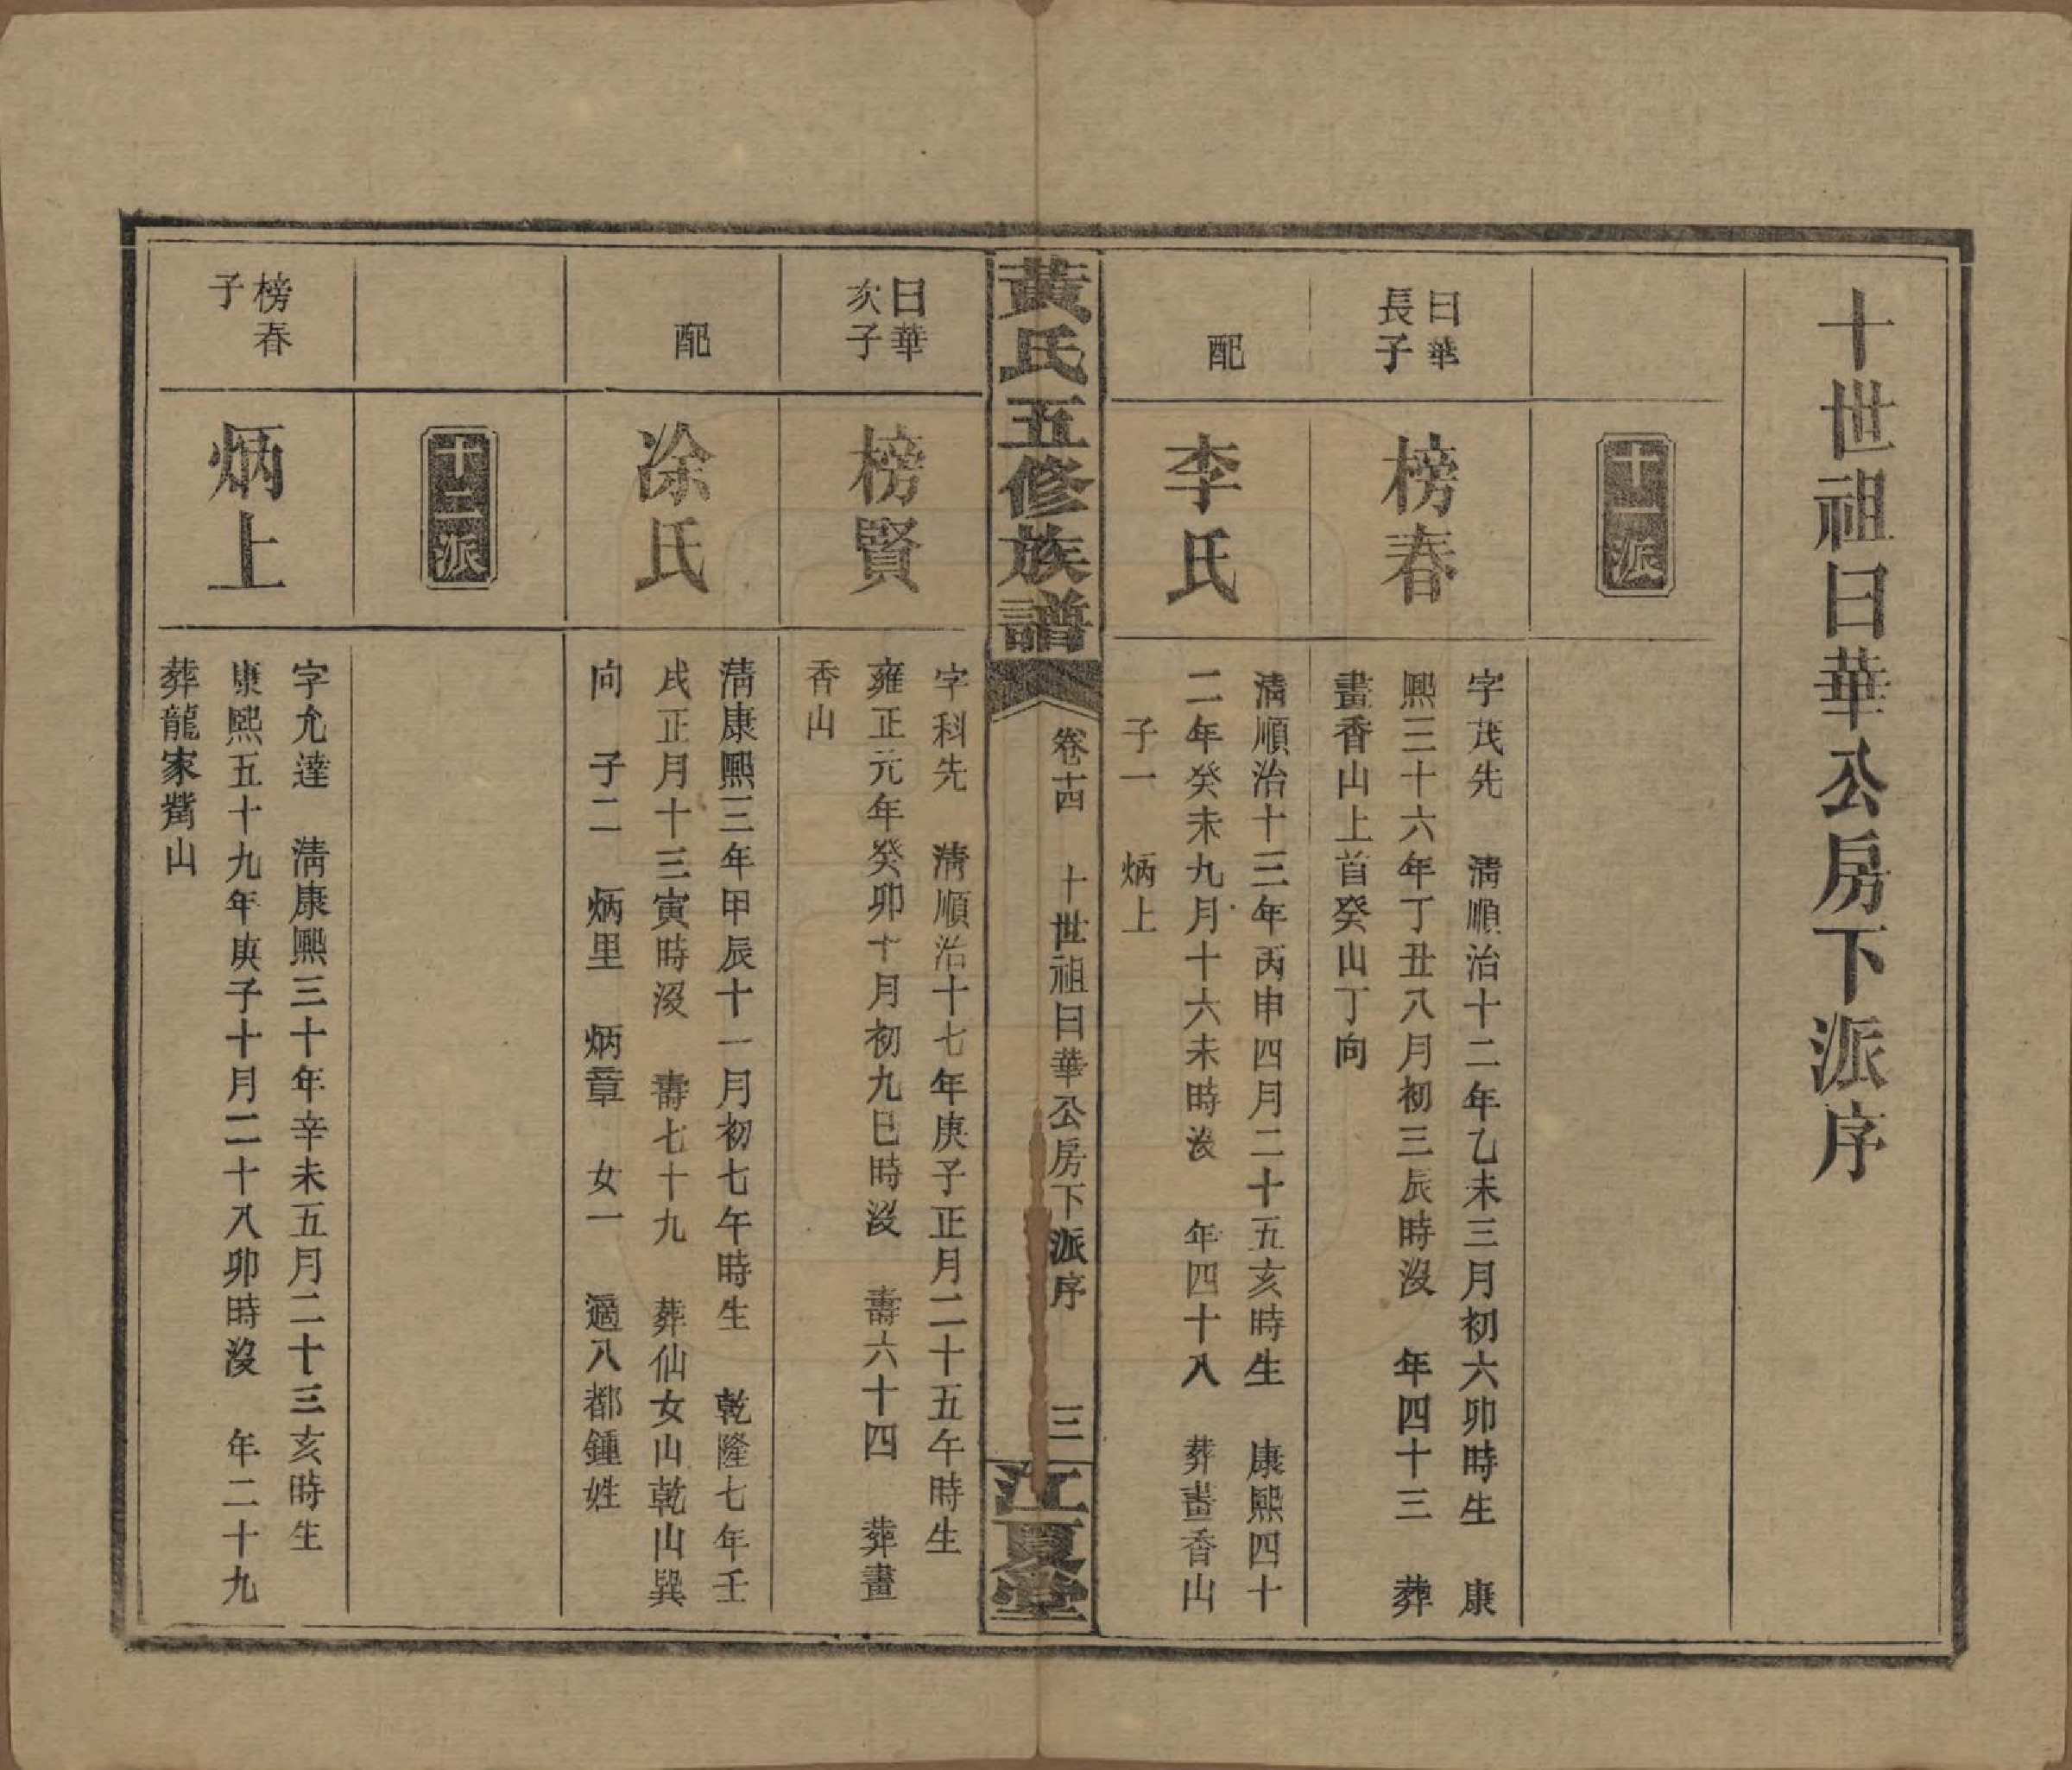 十世祖曰華公房下派序
十一派
曰華
長子
榜春
字茂先　清順治十二年乙未三月初六卯時生　康
熙三十六年丁丑八月初三辰時沒　年四十三　葬
畫香山上首癸山丁向
配
李氏
清順治十三年丙申四月二十五亥時生　康熙四十
二年癸未九月十六未時沒　年四十八　葬畫香山
子一　炳上
黃氏五修族譜
卷十四　十世祖曰華公房下派序　三
江夏堂
曰華
次子
榜賢
字科先　清順治十七年庚子正月二十五午時生
雍正元年癸卯十月初九巳時沒　壽六十四　葬畫
香山
配
凃氏
清康熙三年甲辰十一月初七午時生　乾隆七年壬
戌正月十三寅時沒　壽七十九　葬仙女山乾山巽
向　子二　炳里　炳章　女一　適八都鍾姓
十二派
榜春
子
炳上
字允達　清康熙三十年辛未五月二十三亥時生
康熙五十九年庚子十月二十八卯時沒　年二十九
葬龍家嘴山